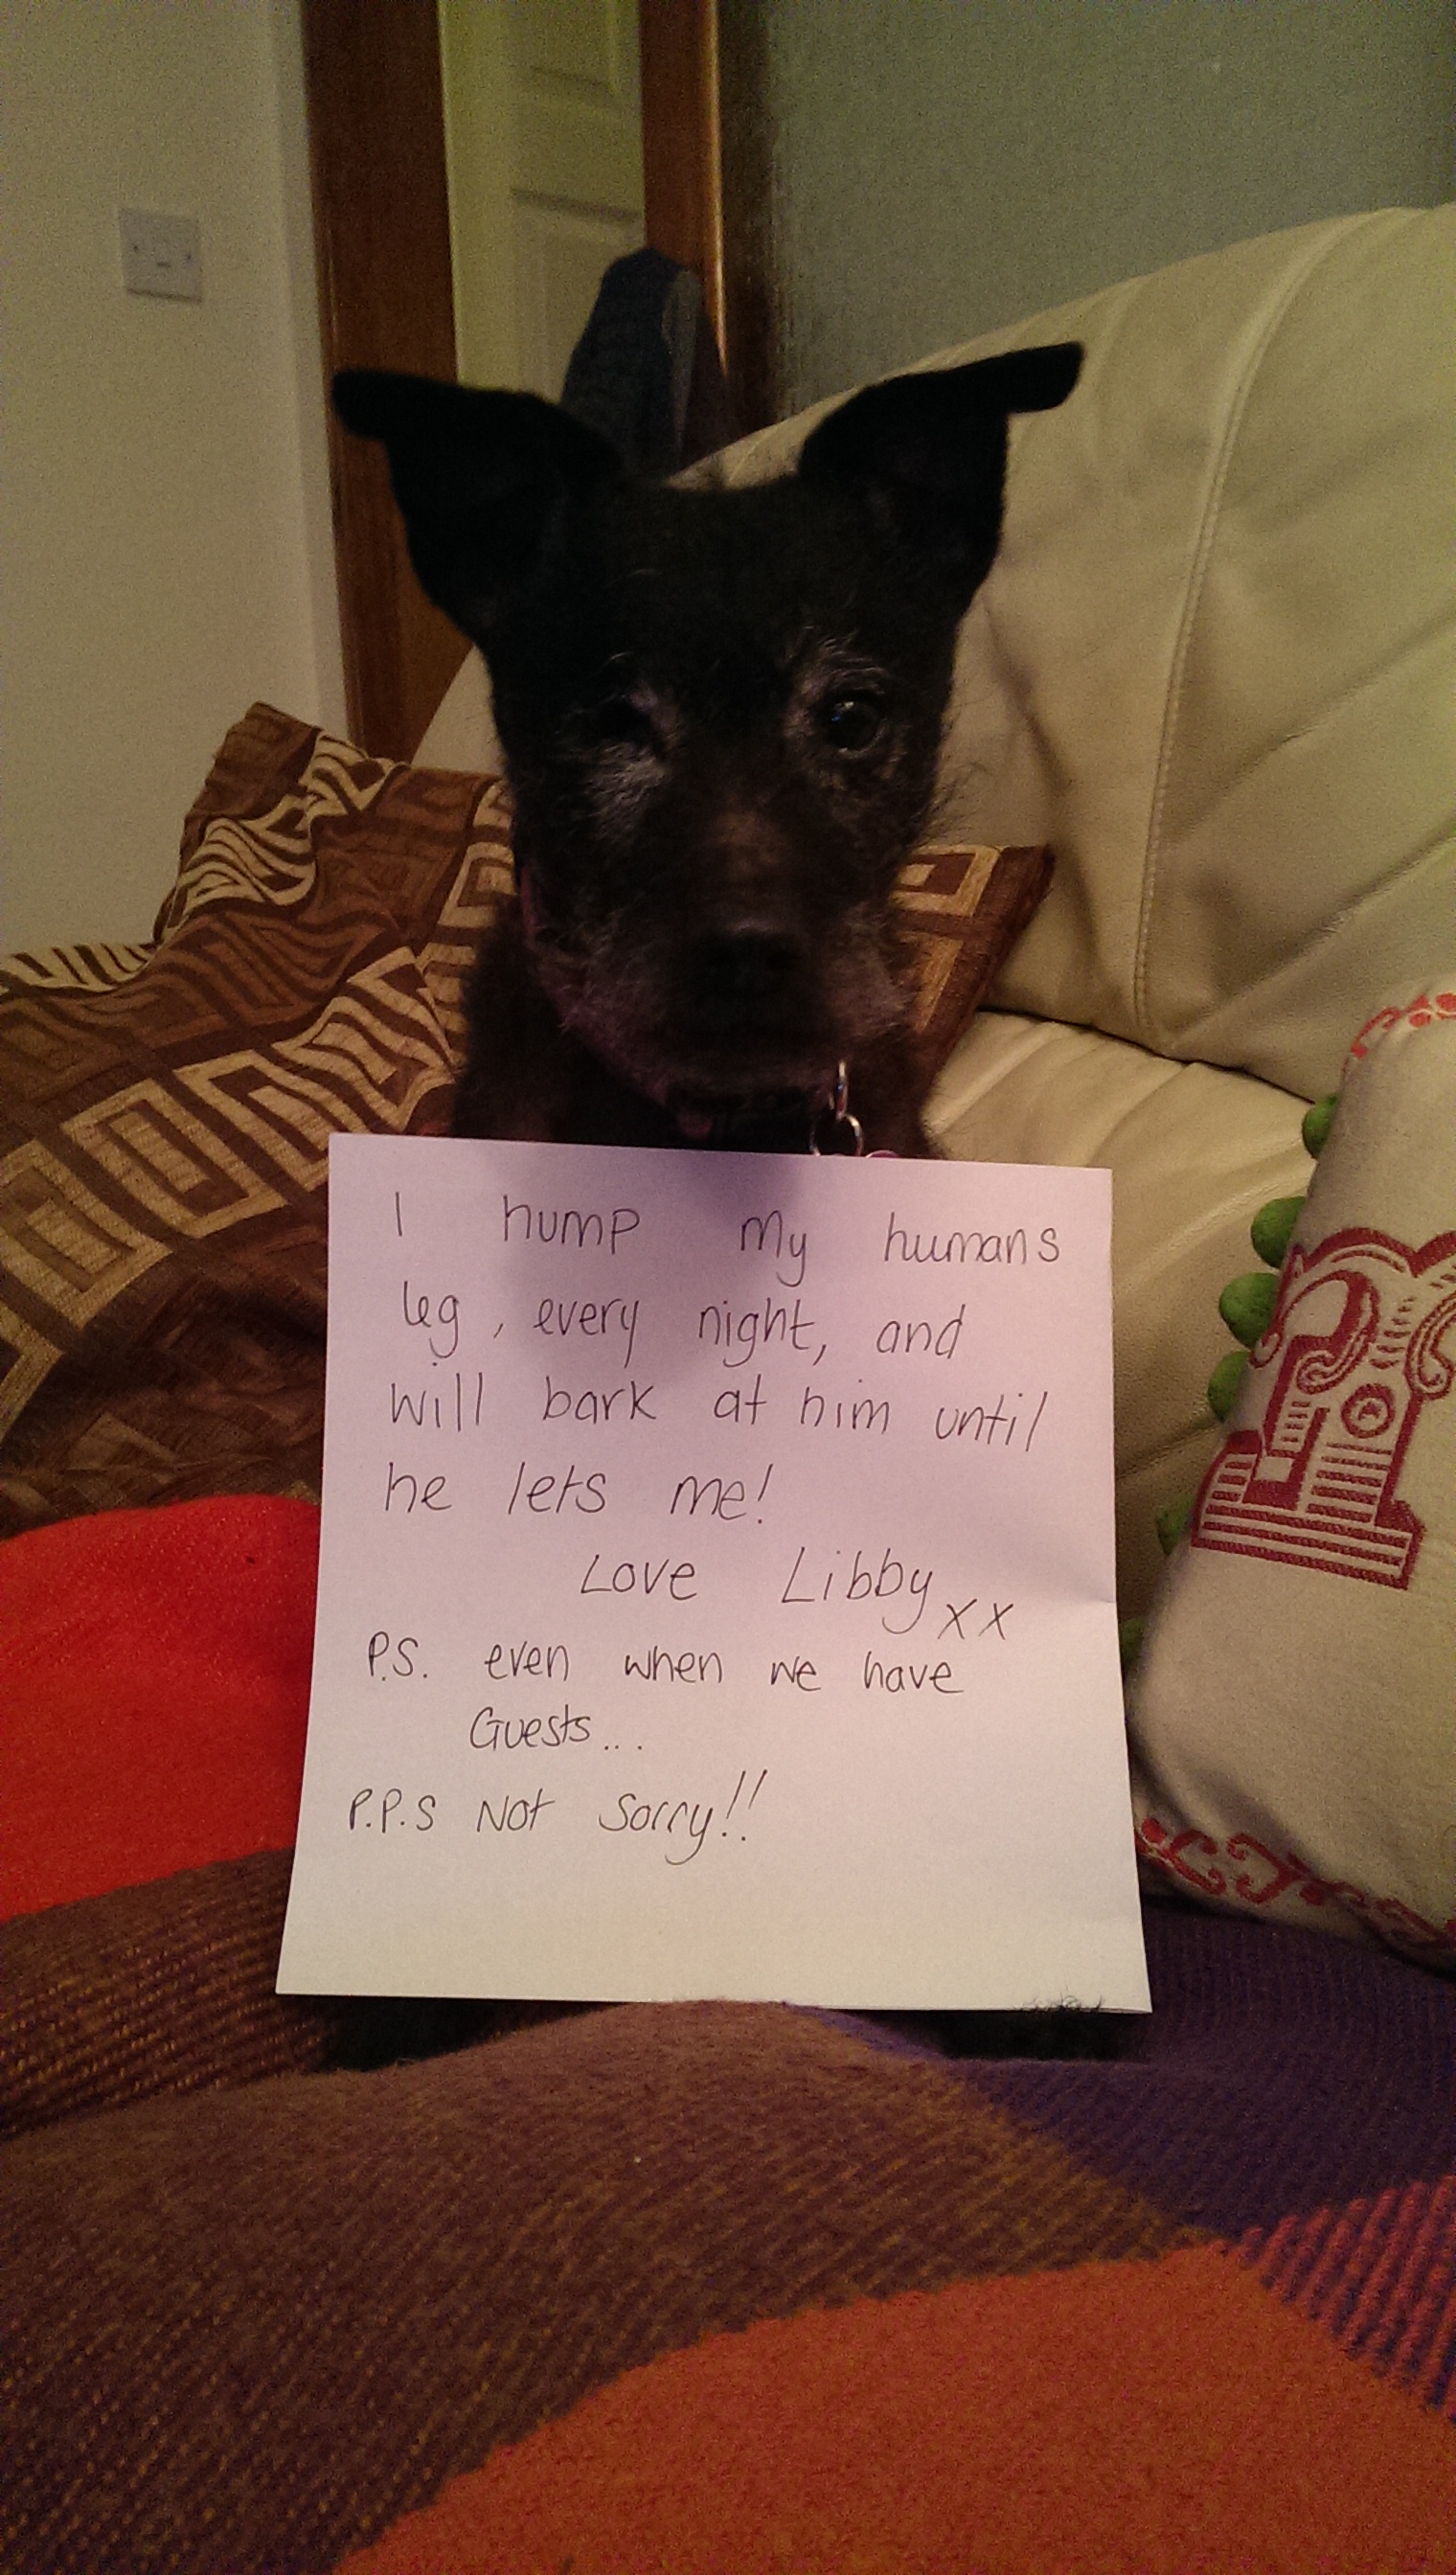 I hump my humans
leg, every night, and
will bark at him until
he lets me!
Love Libby xx
P.S. even when we have
Guests...
P.P.S Not Sorry!!